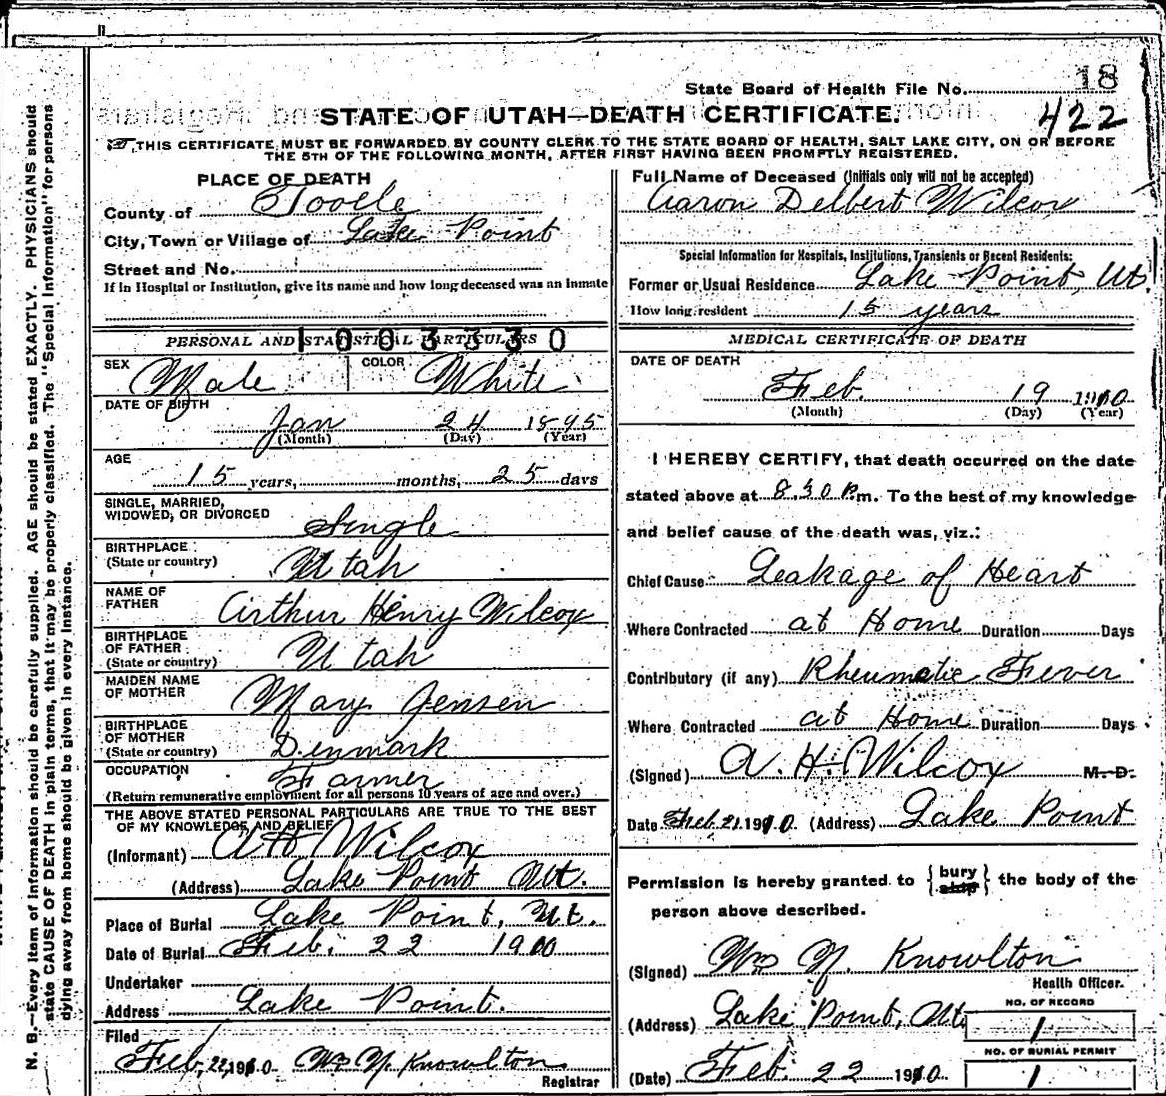 State Board of Health File No. 18
STATE OF UTAH—DEATH CERTIFICATE. 422
THIS CERTIFICATE MUST BE FORWARDED BY COUNTY CLERK TO THE STATE BOARD OF HEALTH, SALT LAKE CITY, ON OR BEFORE
THE 5TH OF THE FOLLOWING MONTH, AFTER FIRST HAVING BEEN PROMPTLY REGISTERED.
PLACE OF DEATH
County of Tooele
City, Town or Village of Lake Point
Street and No.
If in Hospital or Institution, give its name and how long deceased was an inmate
PERSONAL AND STATISTICAL PARTICULARS
1003330
SEX Male COLOR White
DATE OF BIRTH
Jan 24 1895
(Month) (Day) (Year)
AGE
15 years, months, 25 days
SINGLE, MARRIED,
WIDOWED, OR DIVORCED Single
BIRTHPLACE
(State or country) Utah
NAME OF
FATHER Arthur Henry Wilcox
BIRTHPLACE
OF FATHER
(State or country) Utah
MAIDEN NAME
OF MOTHER Mary Jensen
BIRTHPLACE
OF MOTHER
(State or country) Denmark
OCCUPATION Farmer
(Return remunerative employment for all persons 10 years of age and over.)
THE ABOVE STATED PERSONAL PARTICULARS ARE TRUE TO THE BEST
OF MY KNOWLEDGE AND BELIEF
(Informant) A H Wilcox
(Address) Lake Point Ut.
Place of Burial Lake Point, Ut.
Date of Burial Feb. 22 1910
Undertaker
Address Lake Point.
Filed
Feb. 22, 1910. Wm Y. Knowlton
Registrar
Full Name of Deceased (Initials only will not be accepted)
Aaron Delbert Wilcox
Special Information for Hospitals, Institutions, Transients or Recent Residents:
Former or Usual Residence Lake Point, Ut.
How long resident 15 years
MEDICAL CERTIFICATE OF DEATH
DATE OF DEATH
Feb. 19 1910
(Month) (Day) (Year)
I HEREBY CERTIFY, that death occurred on the date
stated above at 8.30 P.m. To the best of my knowledge
and belief cause of the death was, viz.:
Chief Cause Leakage of Heart
Where Contracted at Home Duration Days
Contributory (if any) Rheumatic Fever
Where Contracted at Home Duration Days
(Signed) A. H. Wilcox M. D.
Date Feb 21 1910. (Address) Lake Point
Permission is hereby granted to {bury ship} the body of the
person above described.
(Signed) Wm Y. Knowlton
Health Officer.
(Address) Lake Point, Ut.
NO. OF RECORD
1
NO. OF BURIAL PERMIT
(Date) Feb. 22 1910. 1
N. B.—Every item of information should be carefully supplied. AGE should be stated EXACTLY. PHYSICIANS should
state CAUSE OF DEATH in plain terms, that it may be properly classified. The "Special Information" for persons
dying away from home should be given in every instance.